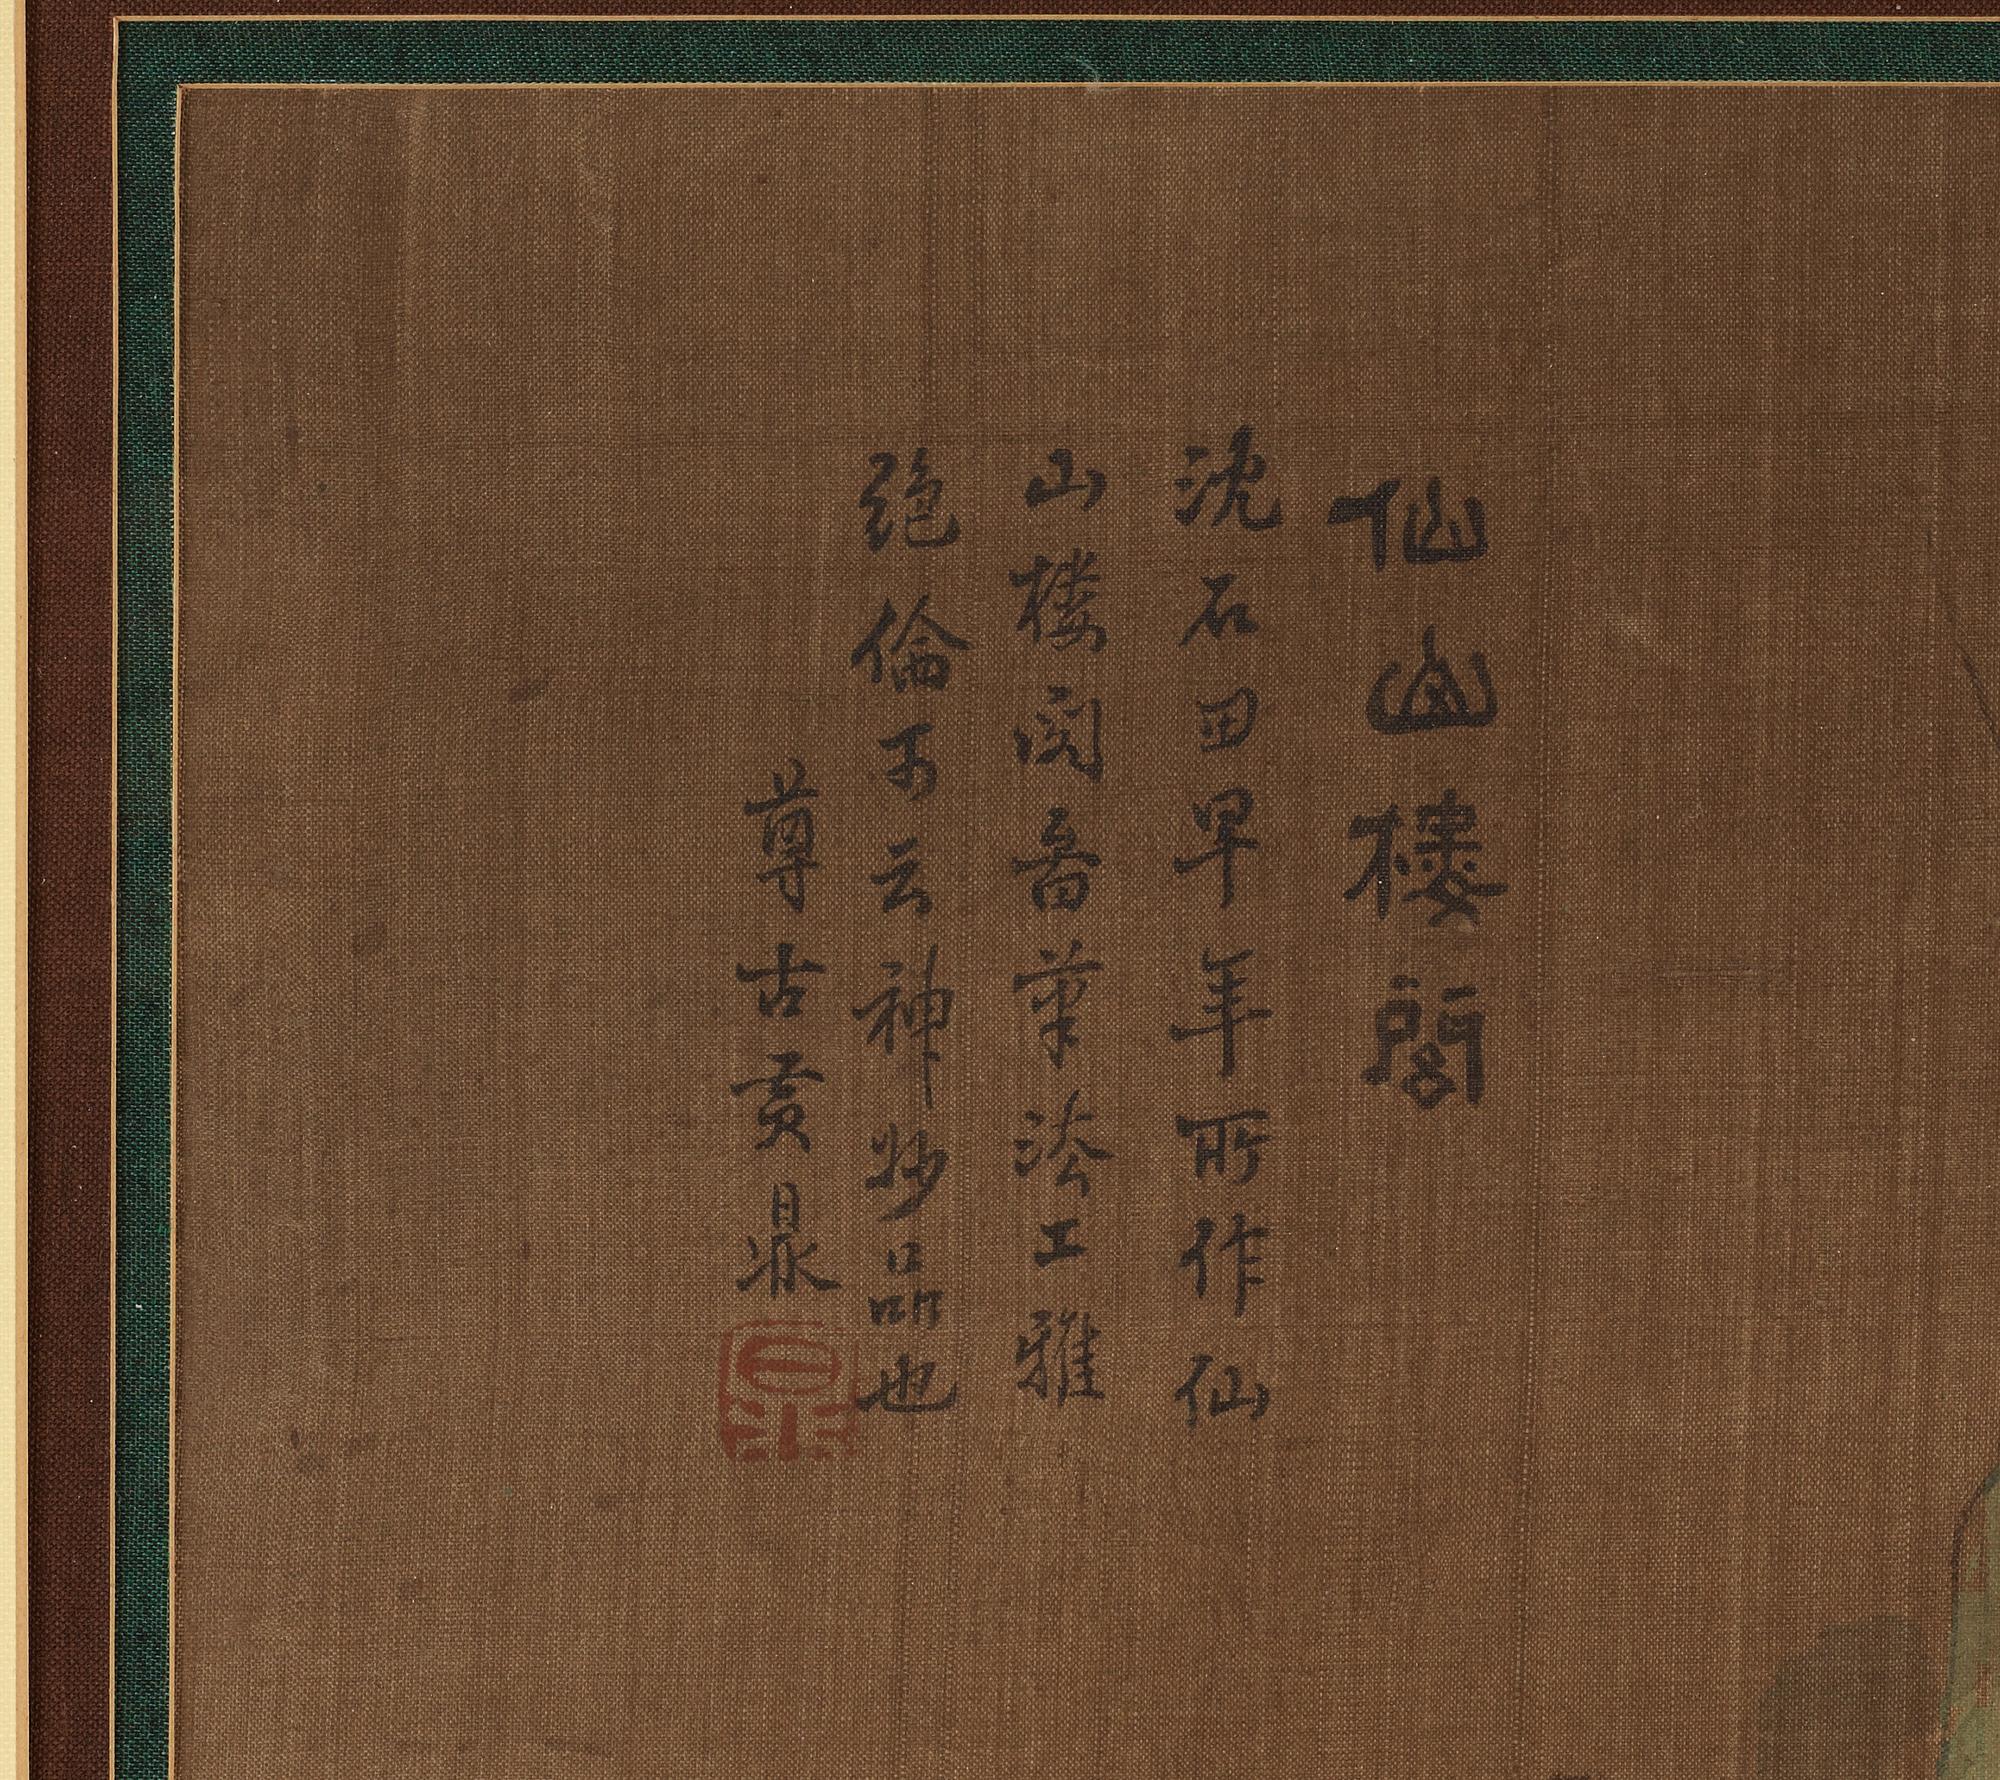 仙山樓閣
沈石田早年所作仙
山楼阁啚筆法工雅
絶倫可云神妙品也
尊古黄鼎